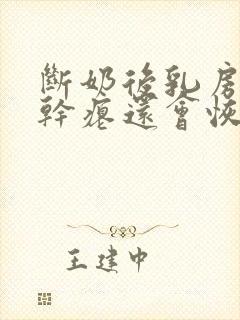 斷奶後乳房
幹瘪還會恢
王建中